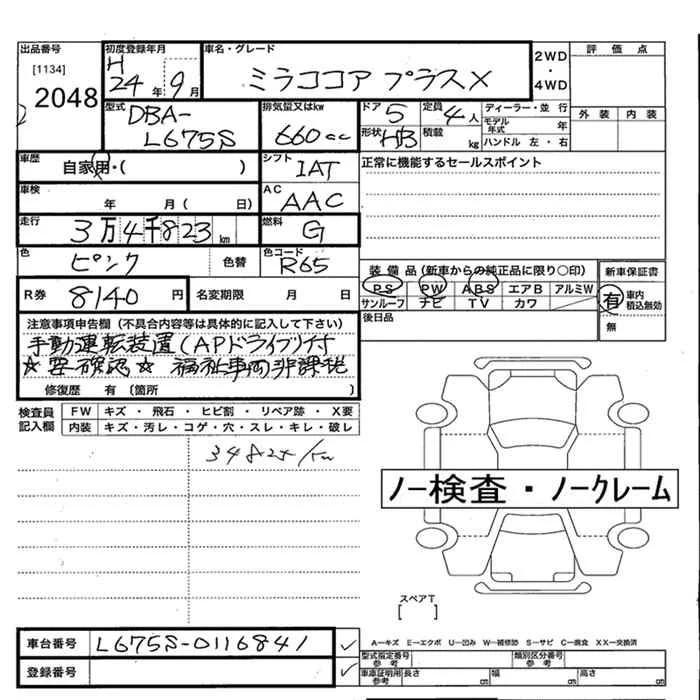 出品番号 初度登録年月 車名・グレード
[1134]
2048
H
24年 9月
ミラココア プラスX
2WD
・
4WD
評 価 点
型式 DBA-
L675S
排気量又はkw
660cc
ドア 5
定員 4人
形状 HB
積載 kg
ディーラー・並 行
モデル
年式 年
ハンドル 左・右
外 装 内 装
車歴 自家用・( )
シフト IAT
正常に機能するセールスポイント
車検 年 月( 日)
AC AAC
走行 3万4千823km
燃料 G
色 ピンク 色替
色コード R65
R券 8140 円 名変期限 月 日
装 備 品 (新車からの純正品に限り○印)
PS PW ABS エアB アルミW
サンルーフ ナビ TV カワ
新車保証書
有 車内
積込無効
無
後日品
注意事項申告欄 (不具合内容等は具体的に記入して下さい)
手動運転装置(APドライブ)付
☆要確認☆ 福祉車両非課税
修復歴 有 (箇所 )
検査員
記入欄
FW キズ・飛石・ヒビ割・リペア跡・X要
内装 キズ・汚レ・コゲ・穴・スレ・キレ・破レ
ノー検査・ノークレーム
スペアT
[ ]
車台番号 L675S-0116841
登録番号
A―キズ E―エクボ U―凹み W―補修跡 S―サビ C―腐食 XX―交換済
型式指定番号
参 考
類別区分番号
参 考
車庫証明用
参 考
長さ cm 幅 cm 高さ cm